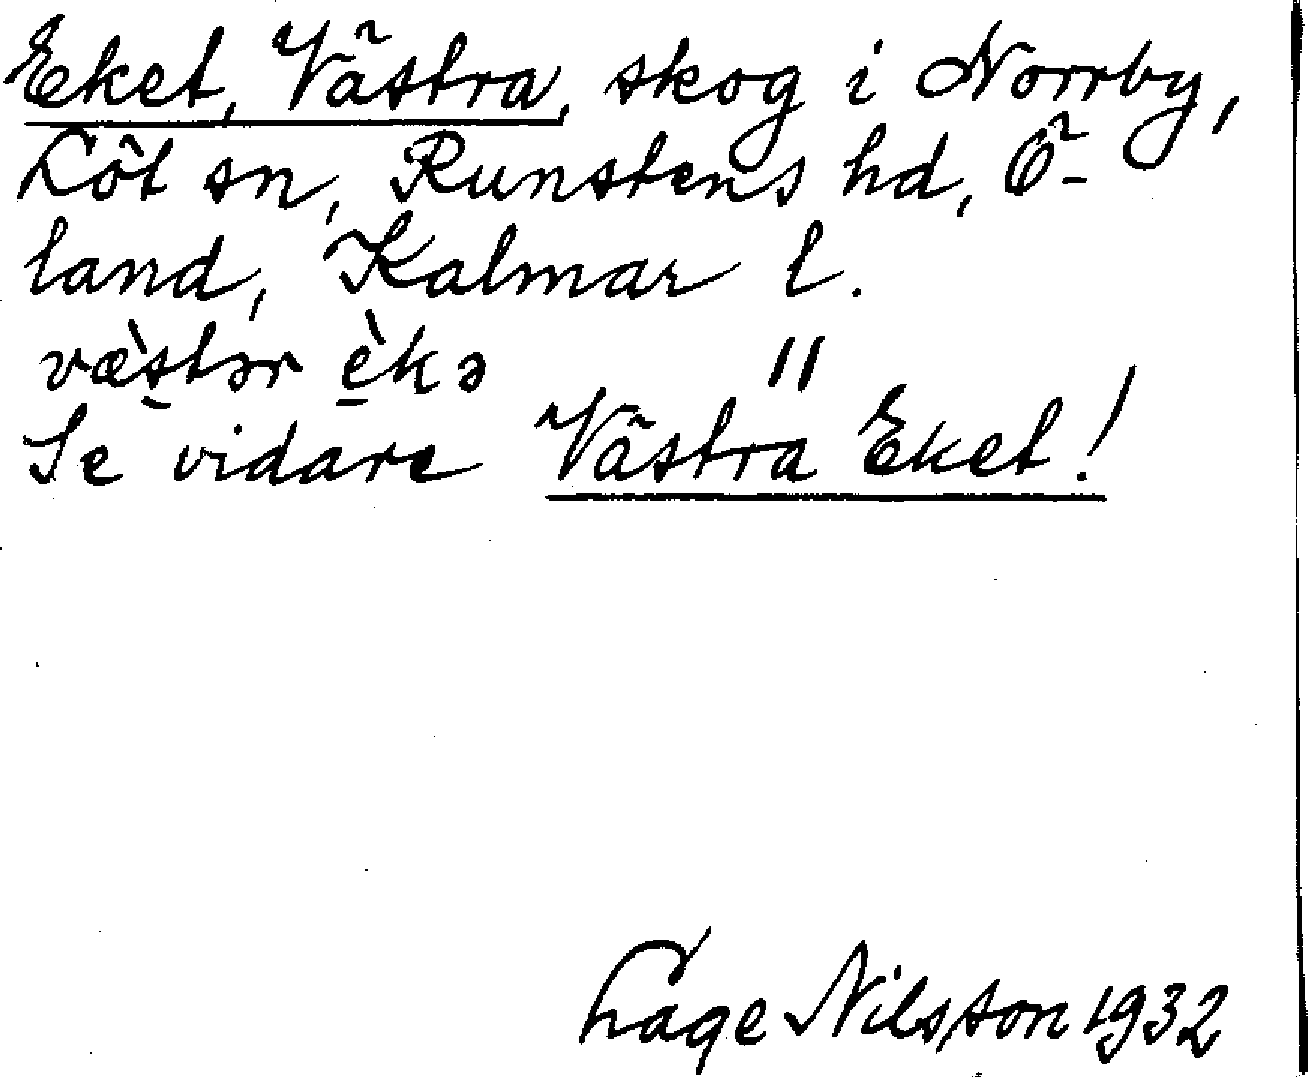 Eket, Västra, skog i Norrby,
Löt sn, Runstens hd, Ö-
land, Kalmar l.
væ̀stər èkə "
Se vidare Västra Eket!
Lage Nilsson 1932